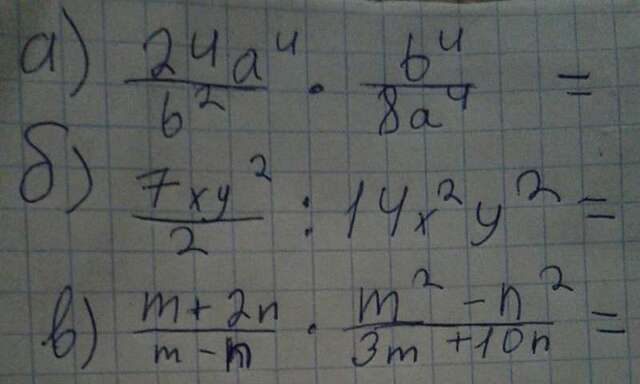 а) 24a⁴/b² · b⁴/8a⁴ =
б) 7xy²/2 : 14x²y² =
в) m+2n/m-n · m²-n²/3m+10n =